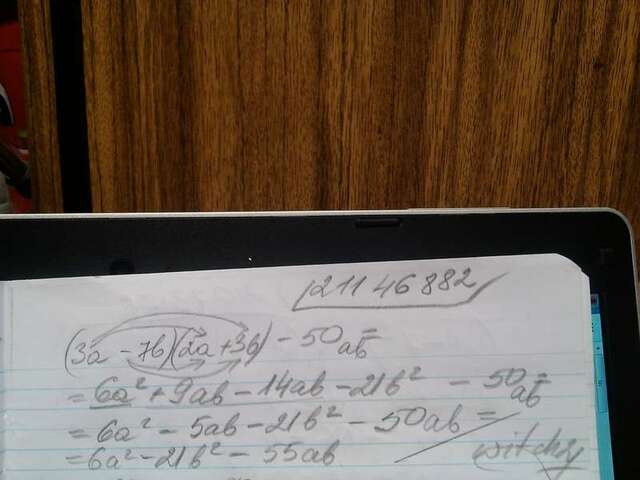 21146882
(3a - 7b)(2a + 3b) - 50ab =
= 6a² + 9ab - 14ab - 21b² - 50ab =
= 6a² - 5ab - 21b² - 50ab =
= 6a² - 21b² - 55ab
witchy